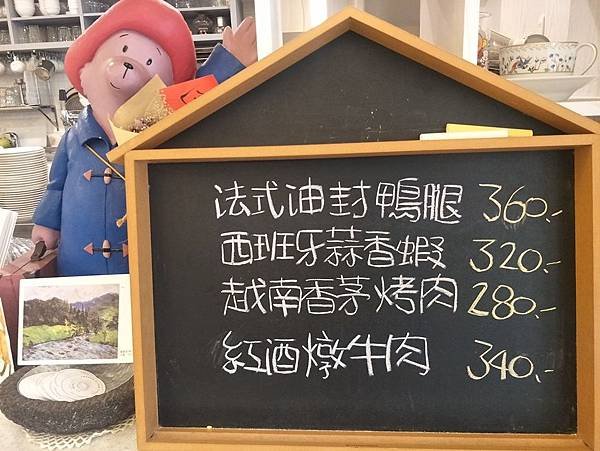 法式油封鴨腿 360.-
西班牙蒜香蝦 320.-
越南香茅烤肉 280.-
紅酒燉牛肉 340.-